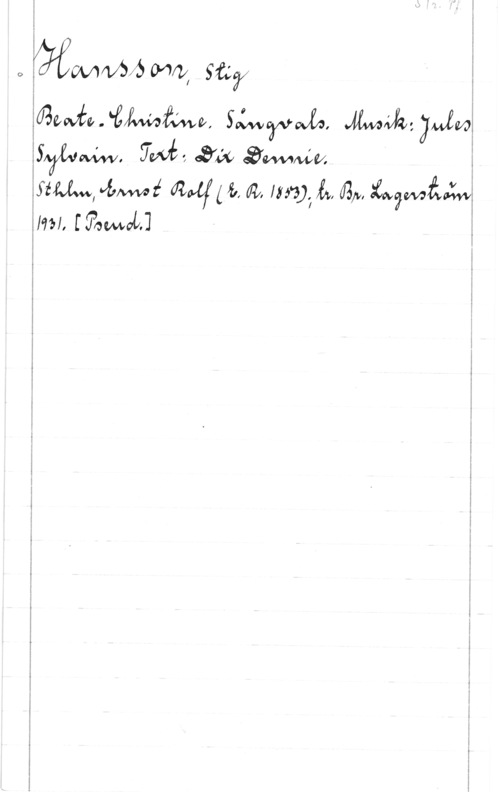 Hansson, Stig
Beate-Christine. Sångvals. Musik: Jules
Sylvain. Text: Dix Dennie.
Sthlm, Ernst Rolf (E. R. 1853); tr. Br. Lagerström
1931. [Pseud.]